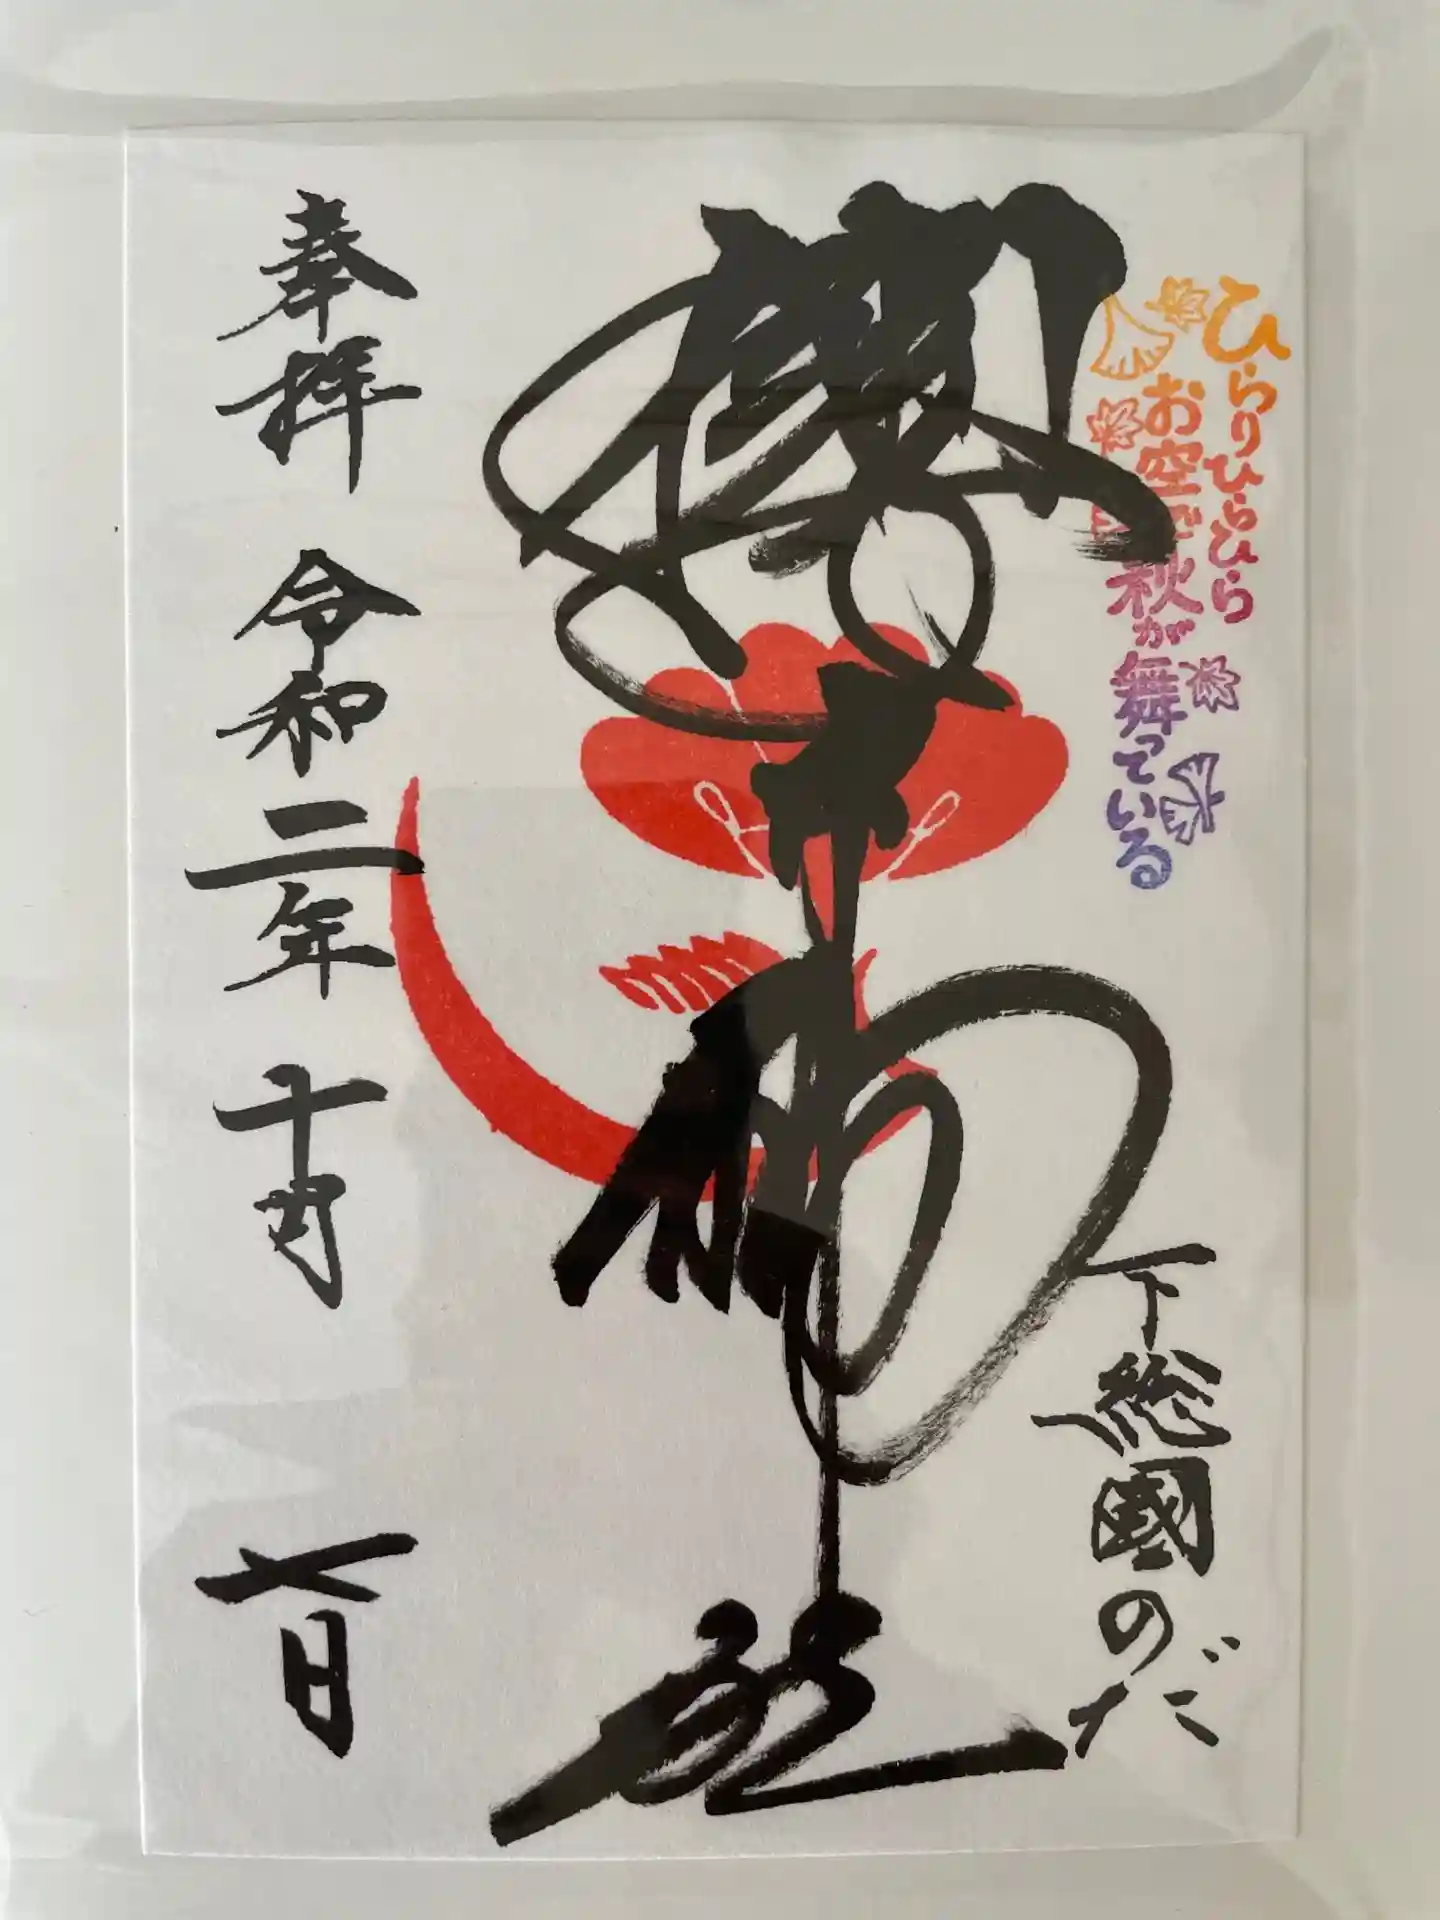 ひらりひらひら
お空で秋が舞っている
下総國のだ
櫻木神社
奉拝 令和二年 十月 七日